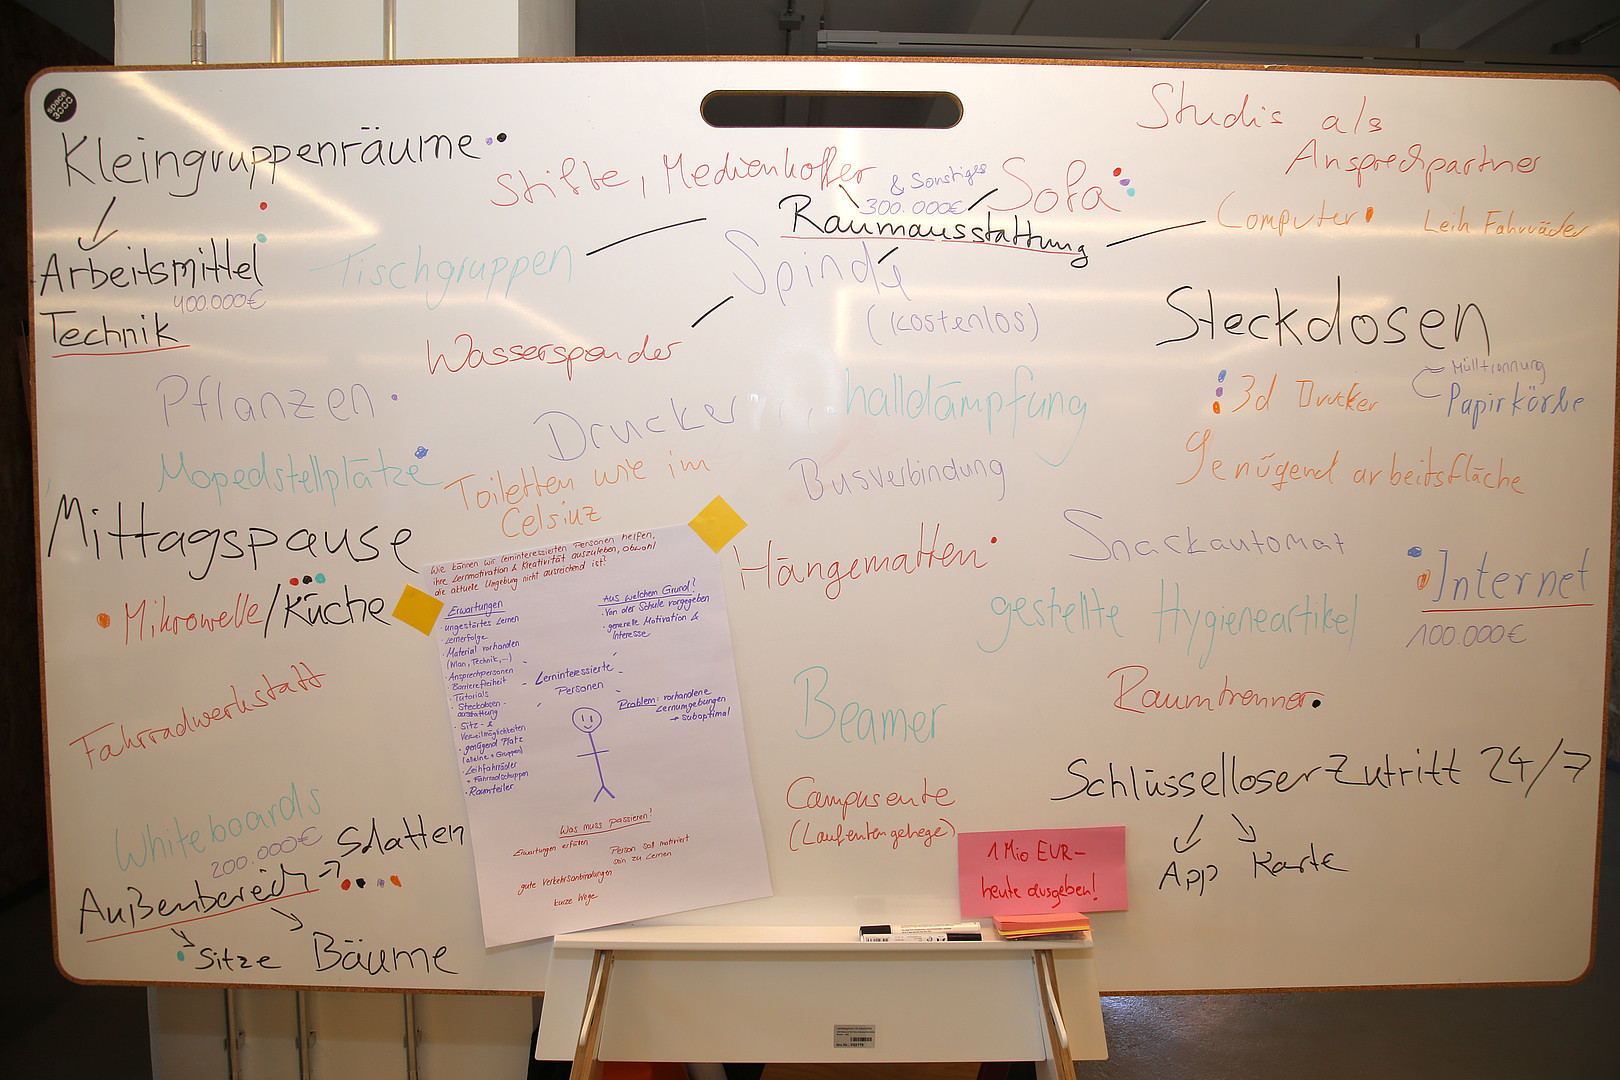 space
3000
Kleingruppenräume
Arbeitsmittel
400.000€
Technik
Stifte, Medienkoffer
& Sonstiges
300.000€
Sofa
Raumausstattung
Studis als
Ansprechpartner
Computer
Leih Fahrräder
Tischgruppen
Spinde
(kostenlos)
Wasserspender
Steckdosen
Pflanzen
Drucker
halldämpfung
3d Drucker
Mülltrennung
Papirkörbe
Mopedstellplätze
Toiletten wie im
Celsiuz
Busverbindung
Genügend arbeitsfläche
Mittagspause
Mikrowelle/Küche
Hängematten
Snackautomat
Internet
100.000€
gestellte Hygieneartikel
Wie können wir lerninteressierten Personen helfen,
ihre Lernmotivation & Kreativität auszuleben, obwohl
die aktuelle Umgebung nicht ausreichend ist?
Erwartungen
· ungestörtes Lernen
· Lernerfolge
· Material vorhanden
(Wlan, Technik,...)
· Ansprechpersonen
· Barrierefreiheit
· Tutorials
· Steckdosen-
ausstattung
· Sitz- &
Verweilmöglichkeiten
· genügend Platz
(alleine + Gruppen)
· Leihfahrräder
+ Fahrradschuppen
· Raumteiler
Aus welchem Grund?
· Von der Schule vorgegeben
· generelle Motivation &
Interesse
Lerninteressierte
Personen
Problem: vorhandene
Lernumgebungen
→ suboptimal
Was muss passieren?
Erwartungen erfüllen
Person soll motiviert
sein zu lernen
gute Verkehrsanbindungen
kurze Wege
Fahrradwerkstatt
Beamer
Raumtrenner
Whiteboards
200.000€
Außenbereich → Schatten
Sitze
Bäume
Campusente
(Laufentengehege)
Schlüsselloser Zutritt 24/7
App
Karte
1 Mio EUR-
heute ausgeben!